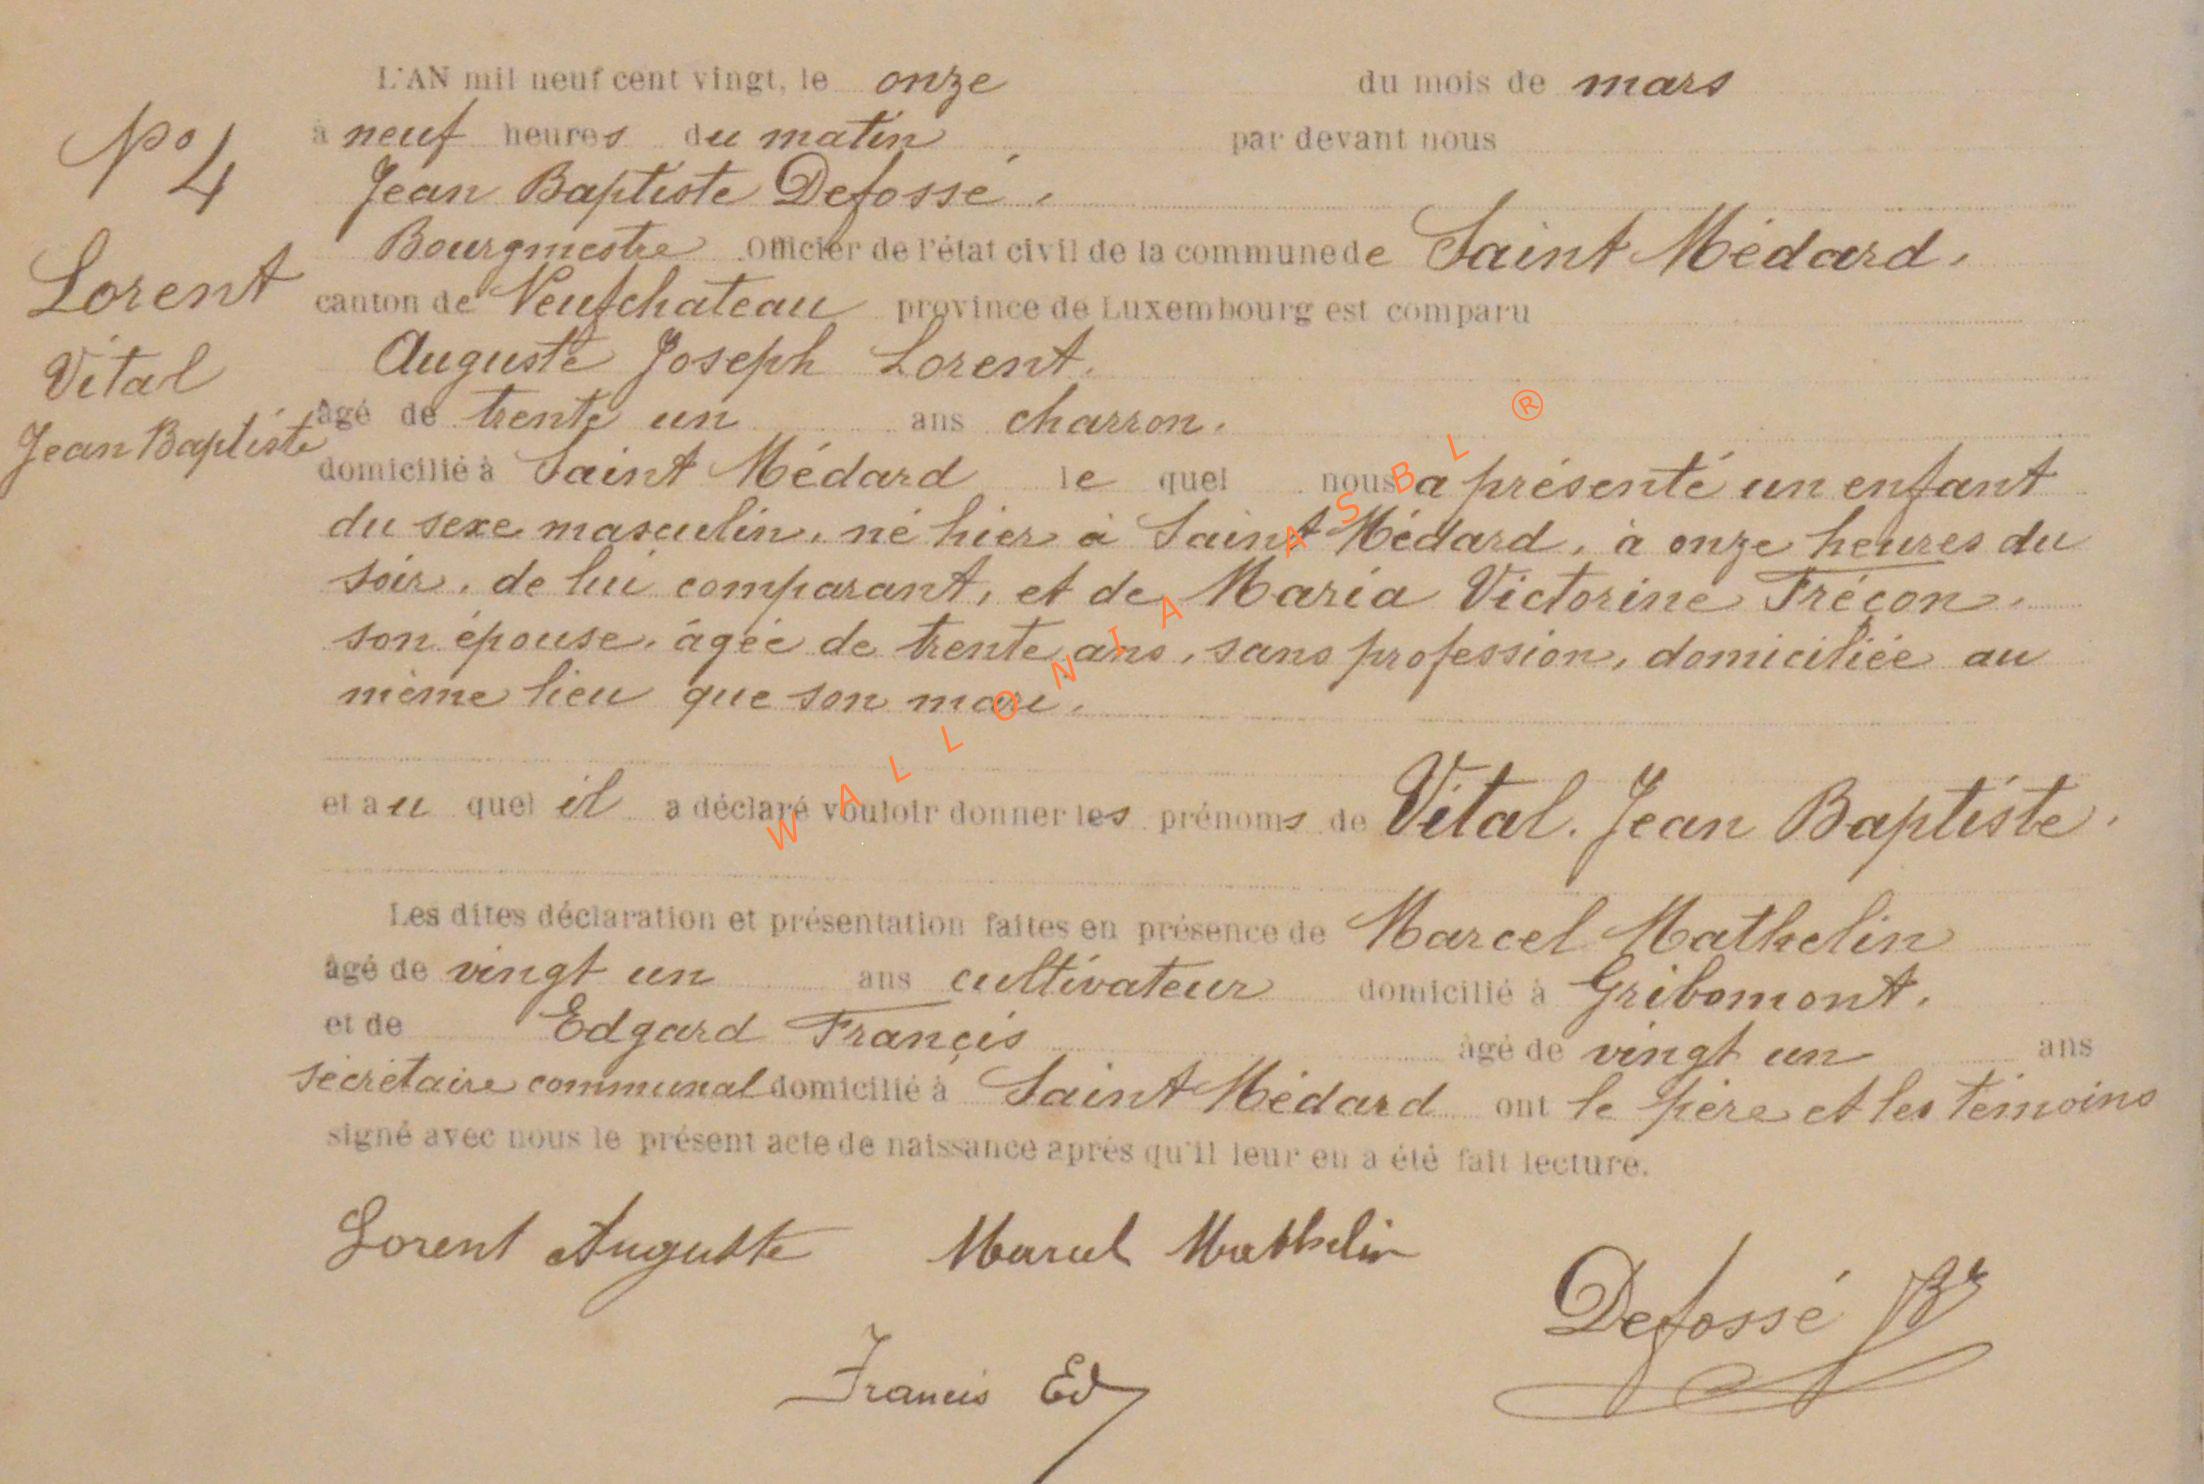 L'AN mil neuf cent vingt, le onze du mois de mars
à neuf heures du matin par devant nous
Jean Baptiste Defossé,
Bourgmestre Officier de l'état civil de la commune de Saint Médard,
canton de Neufchateau province de Luxembourg est comparu
Auguste Joseph Lorent,
âgé de trente un ans charron,
domicilié à Saint Médard le quel nous a présenté un enfant
du sexe masculin, né hier à Saint Médard, à onze heures du
soir, de lui comparant, et de Maria Victorine Tréçon,
son épouse, âgée de trente ans, sans profession, domiciliée au
même lieu que son mari.
et au quel il a déclaré vouloir donner les prénoms de Vital. Jean Baptiste.
Les dites déclaration et présentation faites en présence de Marcel Mathelin
âgé de vingt un ans cultivateur domicilié à Gribomont,
et de Edgard Françis âgé de vingt un ans
secrétaire communal domicilié à Saint Médard ont le père et les témoins
signé avec nous le présent acte de naissance après qu'il leur en a été fait lecture.
Nº 4
Lorent
Vital
Jean Baptiste
Lorent Auguste Marcel Mathelin
Defossé Br
Francis Ed
WALLONIA ASBL ®